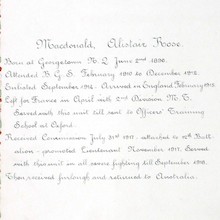 Macdonald, Alistair Rose.
Born at Georgetown N.Q. June 2nd 1896.
Attended B.G.S. February 1910 to December 1912.
Enlisted September 1914. Arrived in England February 1915
Left for France in April with 2nd Division M.T.
Served with this unit till sent to Officers' Training
School at Oxford.
Received Commission July 31st 1917, attached to 15th Batt-
alion - promoted Lieutenant November 1917. Served
with this unit in all severe fighting till September 1918.
Then received furlough and returned to Australia.